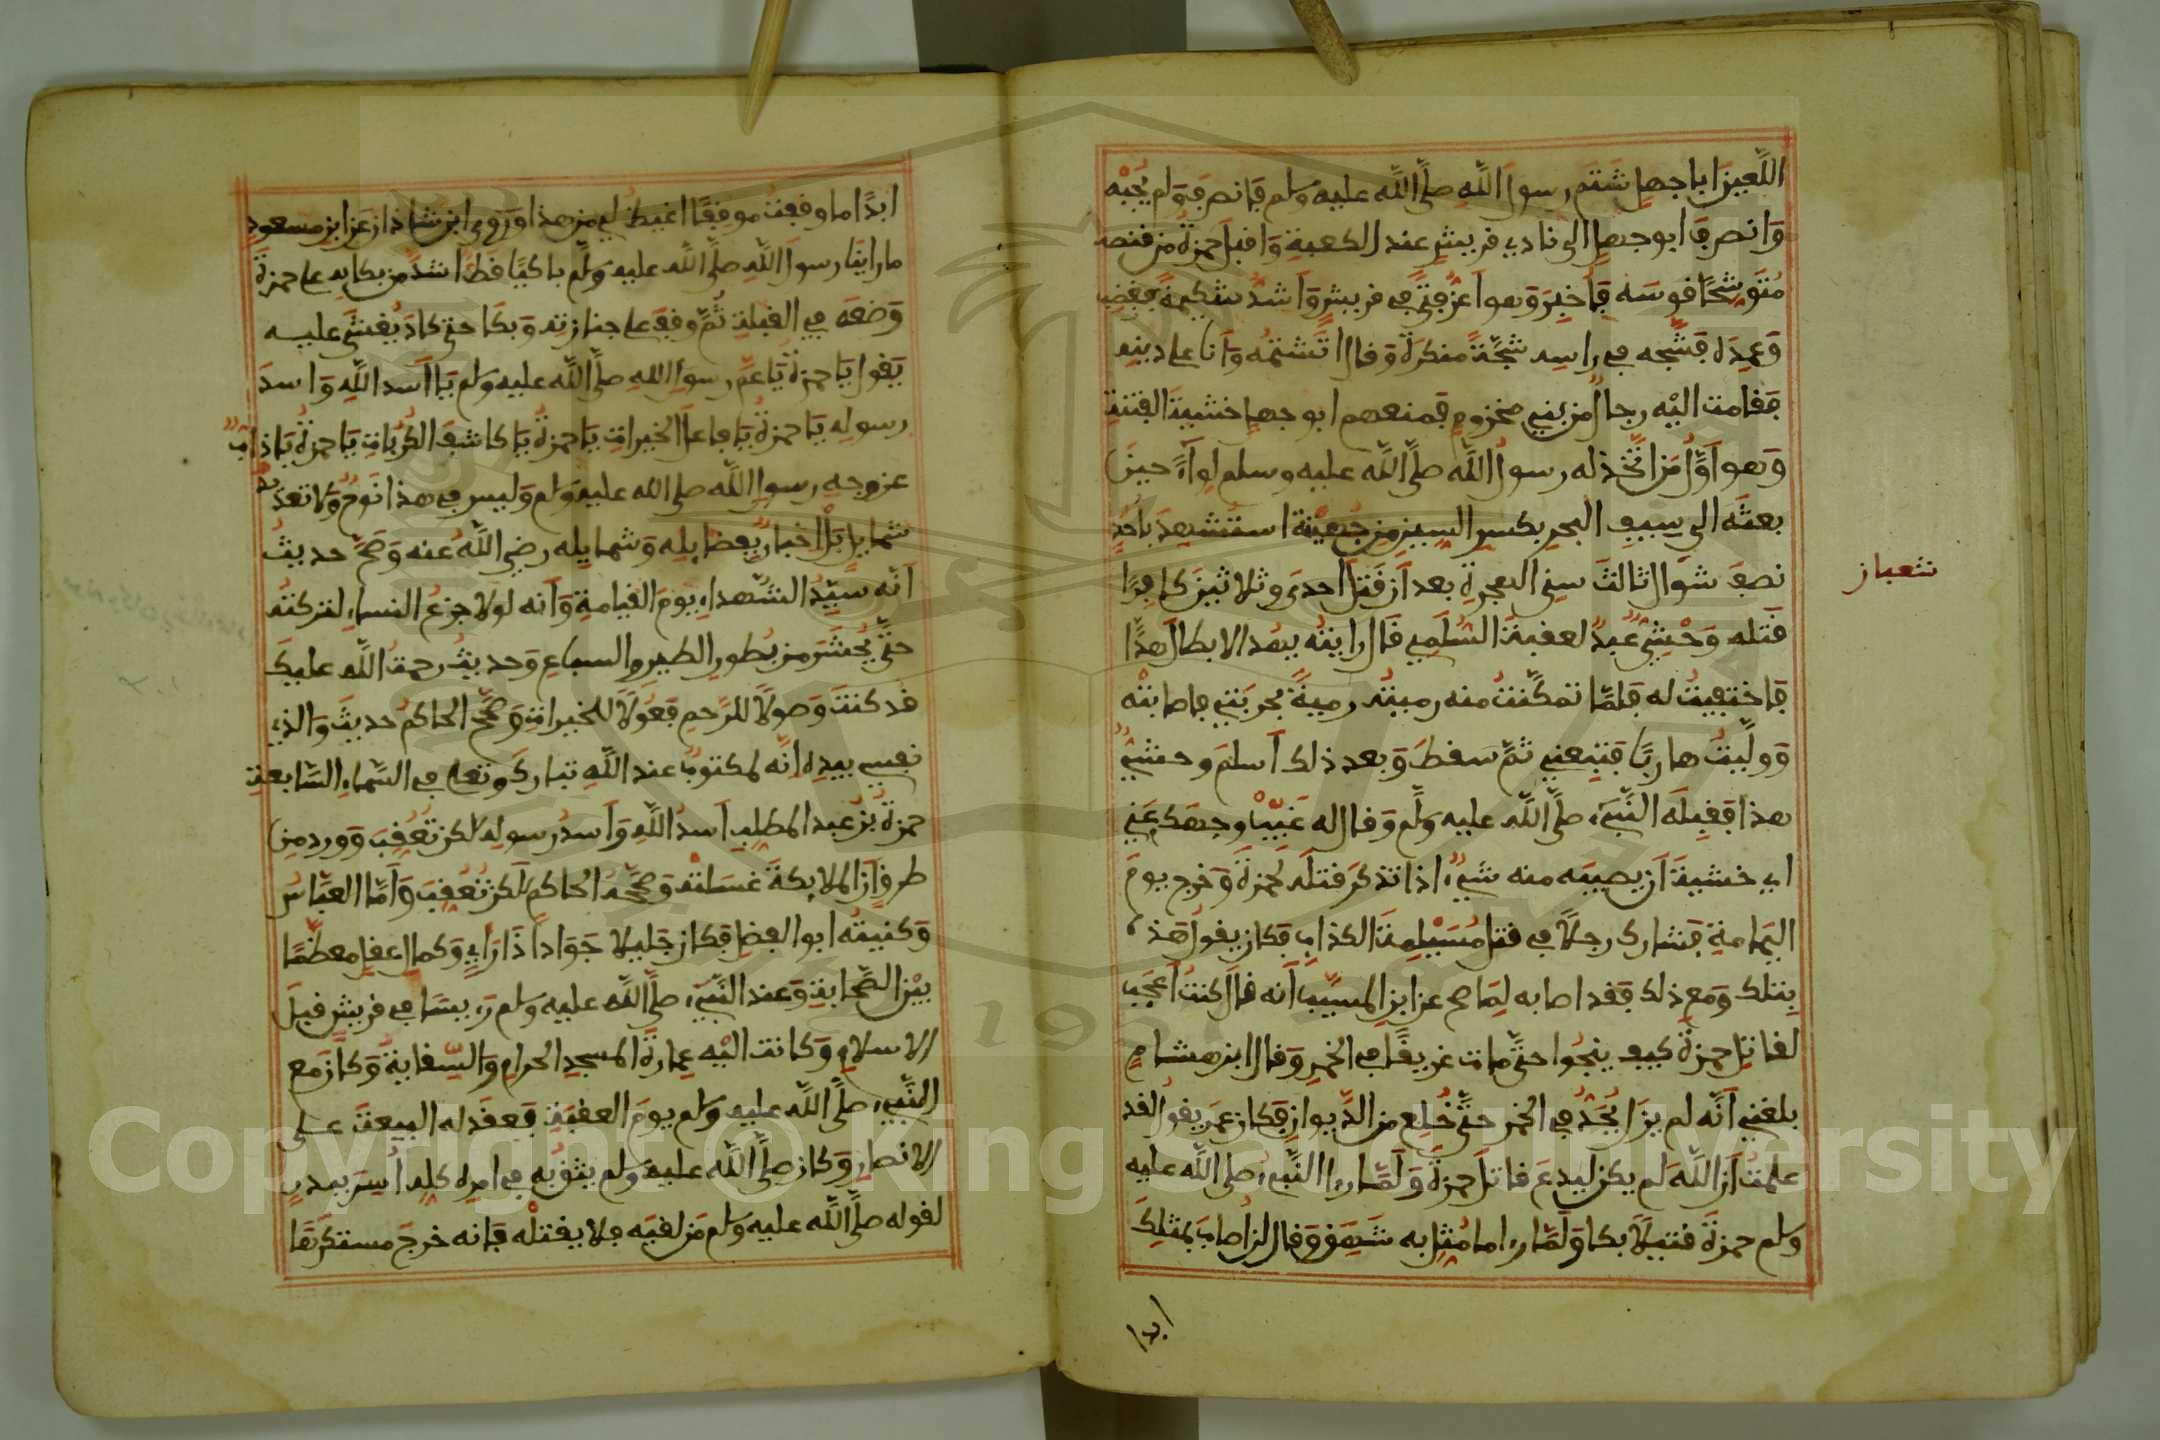 اللَّعينَ ابا جهلٍ شَتَم رسولَ اللَّهِ صلَّى اللَّه عليه وسلم فانصرفَ ولم يُجِبْه
وَانصرفَ ابو جهلٍ الى نادي قريشٍ عند الكعبةِ وَاقبلَ حمزةُ من قنصه
مُتَوشِّحًا قوسَه فأُخبِرَ وَهو اَعزُّ فتًى في قريشٍ وَاشدُّ شكيمةً فغضِب
وَعمِدَ له فشَجَّه في راسِه شجَّةً منكرةً وَقال اتَشتمُه وَانا على دينِه
فقامت اليْه رجالٌ من بني مخزومٍ فمنعهم ابو جهلٍ خشيةَ الفتنةِ
وَهو اَوّلُ مَن اتَّخذ له رسولُ اللَّه صلَّى اللَّه عليه وسلم لِواءً حينَ
بعثَه الى سِيفِ البحرِ بكسرِ السينِ من جُهيْنةَ استُشهِدَ باُحُدٍ
نصفَ شوّالٍ ثالثَ سنِي الهجرةِ بعد اَن قتلَ اَحدَ وثلاثينَ كافرًا
شعبان
قَتله وَحْشِيٌّ عبدٌ لعقبةَ السُّلَمِي قال رايتُه يهُد الابطالَ هدًّا
فاختفيتُ له فلمَّا تمكَّنتُ منه رميتُه رميةً بحربتي فاصابتْه
وَولَّيتُ هاربًا فتبِعني ثمَّ سقطَ وَبعد ذلك اَسلمَ وحشيٌّ
هذا فقبِلَه النَّبيءُ صلَّى اللَّه عليه وسلَّم وَقال له غيِّبْ وجهك عنِّي
اي خشيةَ اَن يصيبَه منه شيءٌ اذا تذكرَ قتلَه لحمزةَ وَخرج يومَ
اليَمامةِ فشارك رجلًا في قتلِ مُسَيْلِمةَ الكذابِ فكان يقولُ هذه
بِتلك وَمع ذلك فقد اصابه لِمَا صح عن ابنِ المسيِّبِ اَنه قال كنتُ اَعجَب
لقاتلِ حمزةَ كيف ينجُوا حتَّى مات غريقًا في الخمرِ وَقال ابن هشامٍ
بلغني اَنَّه لم يزَل يُحَدُّ في الخمر حتَّى خُلِع من الدِّيوانِ فكان عمَر يقولُ لقد
علمتُ اَنَّ اللَّهَ لم يكن ليدعَ قاتلَ حمزةَ وَلَمَّا راى النَّبيءُ صلى اللَّه عليه
وسلم حمزةَ قتيلًا بكا وَلَمَّا راى ما مُثِّل به شَهِق وَقال لن اُصابَ بمثلِك
ابدا
ابدًا ما وقفتُ موقفًا اغيظُ لي من هذا وَرَوى ابن شاذان عن ابن مسعودٍ
ما راينا رسولَ اللَّه صلَّى اللَّه عليه وسلَّم باكيًا قطُّ اشدَّ من بكايه على حمزةَ
وَضعَه في القبلةِ ثُمَّ وقفَ على جنازتِه وَبكا حتى كادَ يُغشَى عليه
يَقول يَا حمزةُ يَا عمَّ رسولِ اللهِ صلَّى اللَّه عليه وسلم يَا اَسد اللَّهِ وَاسدَ
رسولِه يَا حمزةُ يَا فاعلَ الخيراتِ يَا حمزةُ يَا كاشفَ الكُرُباتِ يَا حمزةُ يَا ذابُّ
عن وجهِ رسولِ اللَّه صلى الله عليه وسلم وَليس في هذا نَوحٌ وَلا تعديدُ
شمايل بل اخبارٌ بفضايلِه وَشمايلِه رضي اللَّهُ عنه وَصَحَّ حديثُ
اَنَّه سيِّدُ الشُّهداءِ يومَ القيامةِ وَاَنه لولا جزعُ النساءِ لتركتُه
حتَّى يُحشَرَ من بُطونِ الطيرِ والسباعِ وَحديثُ رحمةُ اللَّه عليك
قد كنتَ وَصولًا للرَّحمِ فعُولًا للخيراتِ وَصحَّح الحاكمُ حديثَ وَالذي
نفسي بيدِه اِنَّه لمكتوبٌ عند اللَّهِ تباركَ وتعلى في السَّماءِ السَّابعةِ
حمزةُ بْنُ عبد المطلبِ اَسدُ اللَّهِ وَاَسدُ رسولِه لكن تُعُقِّبَ وَورد من
طرقٍ اَن الملايكةَ غسَلتْه وَصحَّحهُ الحاكم لَكن تُعُقِّبَ وَاَمَّا العبَّاسُ
وَكنيتُه ابو الفضلِ فكان جَليلا جَوَادًا ذَا رَاىٍ وَكمالِ عقلٍ معظَّمًا
بيْن الصَّحابةِ وَعند النَّبيءِ صلَّى اللَّه عليه وسلم رَءيسًا في قريشٍ قبلَ
الاسلامِ وَكانت اليْه عِمارةُ المسجدِ الحرامِ وَالسِّقايةُ وَكان مَع
النَّبيءِ صلَّى اللَّه عليه وسلم يومَ العقبةِ فعقَد له البيعةَ على
الانصارِ وَكان صلَّى اللَّه عليه وسلم يثِقُ به في امرِه كلِّه اُسِرَ ببدرٍ
لقوله صلَّى اللَّه عليه وسلم مَن لقيَه فلا يقتلْه فاِنه خرجَ مستكرَهًا
Copyright © King Saud University